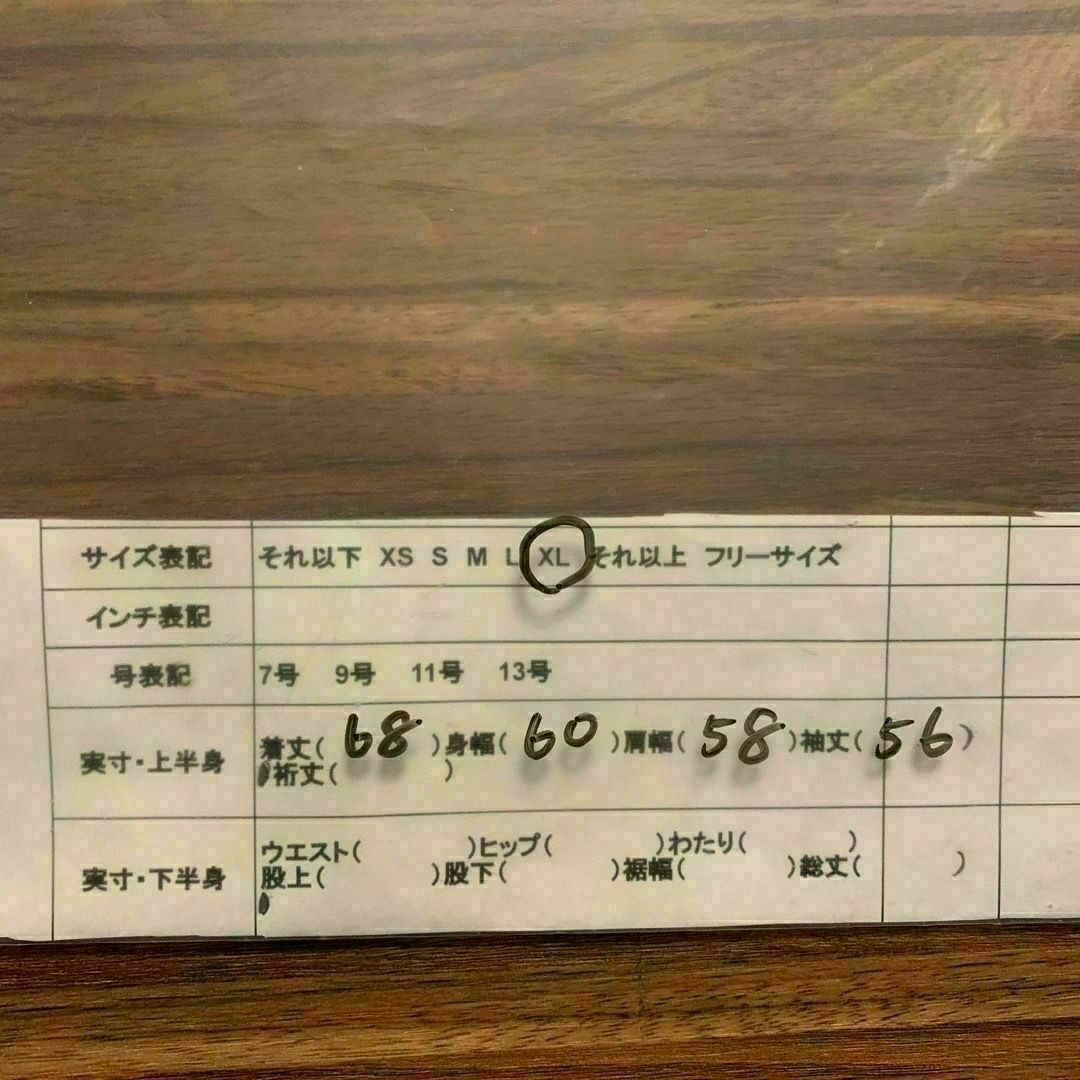 サイズ表記 それ以下 XS S M L XL それ以上 フリーサイズ
インチ表記
号表記 7号 9号 11号 13号
実寸・上半身 着丈( 68 )身幅( 60 )肩幅( 58 )袖丈( 56 )
裄丈( )
実寸・下半身 ウエスト( )ヒップ( )わたり( )
股上( )股下( )裾幅( )総丈( )